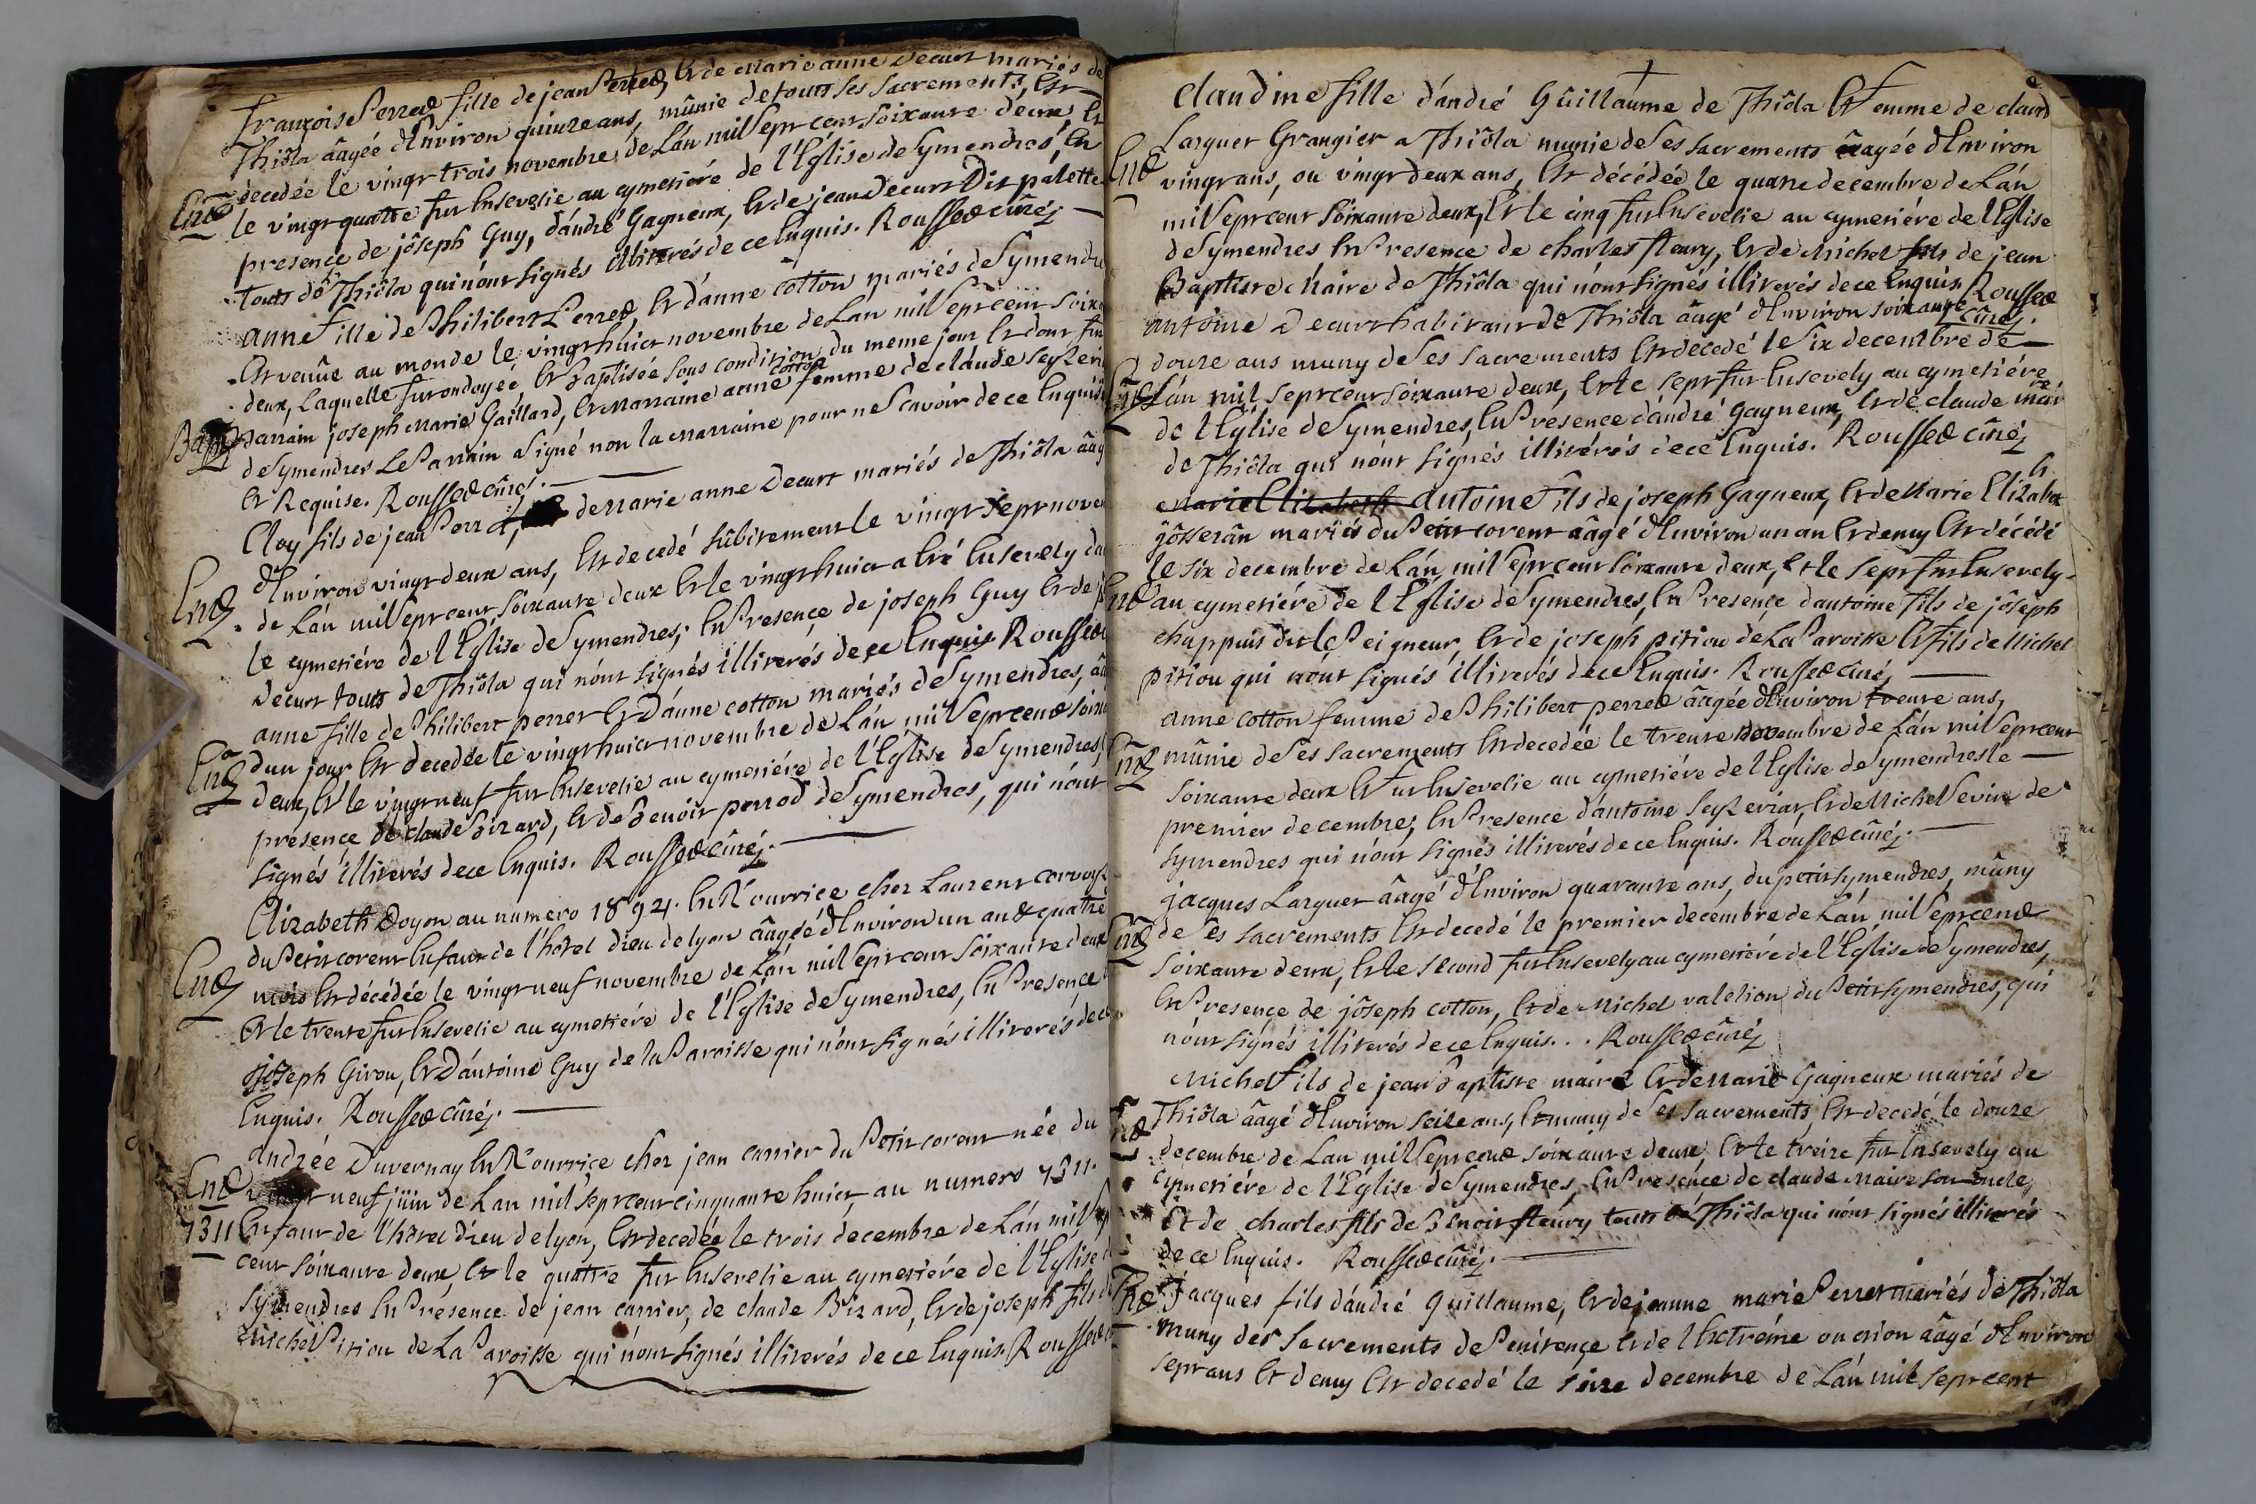 françoise Perret fille de jean Perret, Et de Marie anne Decurt mariés de
Thiôla âagéé d'Environ quinze ans, mûnie de touts ses sacrements, Est
decedée le vingt trois novembre de L'án mil sept cent soixante deux, Et
Ent le vingt quatre fut Ensevelie au cymetiére de l'Eglise de Symendres, En
presence de jôseph Guy, d'ándré Gagneux, Et de jean Decurt Dit palette
touts de Thiôla qui n'ont signés illiterés de ce Enquis. Rousset curé
anne fille de Philibert Perret Et d'anne cotton mariés de Symendre
Est venûe au monde le vingt huict novembre de Lan mil sept cent soixa
deux, Laquelle fut ondoyéé Et Baptiséé sous condition du meme jour Et dont fut
Bapt Parrain joseph Marie Gaillard, Et Marraine anne cotton femme de claude Seyzeria
de Symendres Le Parrain a signé non la Marraine pour ne sçavoir de ce Enquise
Et Requise. Rousset curé.
Cloy fils de jean Perret, de Marie anne Decurt mariés de Thiôla âag
Ent d'Environ vingt deux ans, Est decedé sûbitement le vingt sept novem
de L'án mil sept cent soixante deux Et le vingt huict a Eté Ensevely da
le cymetiére de l'Eglise de Symendres, En Presençe de joseph Guy Et de j
Decurt touts de Thiôla qui n'ont signés illiterés de ce Enquis Rousset
anne fille de Philibert perret Et d'ánne cotton mariés de Symendres, âa
Ent d'un jour Est decedée le vingt huict novembre de L'án mil sept cent soixa
deux, Et le vingt neuf fut Ensevelie au cymetiére de l'Eglise de Symendres,
présence de claude Bizard, Et de Benoit perrod de Symendres, qui n'ont
signés illiterés de ce Enquis. Rousset curé.
Elizabeth Doyon au numero 1894. En Nourrice chez Laurent corvoyz
du Petit corent Enfant de l'hôtel Dieu de lyon âagéé d'Environ un an et quatre
Ent mois Est décédée le vingt neuf novembre de L'án mil sept cent soixante deux
Et le trente fut Ensevelie au cymetiére de l'Eglise de Symendres, En Presence
jôseph Girou, Et D'antoine Guy de la Paroisse qui n'ont signés illiterés de ce
Enquis. Rousset curé.
andrée Duvernay En Nourriçe chez jean carrier du Petit corent née du
Ent vingt neuf jüin de Lan mil sept cent cinquante huict, au numero 7311.
7311 Enfant de l'hôtel Dieu de lyon, Est decedée le trois decembre de L'án mil sept
cent soixante deux, Et le quatre fut Ensevelie au cymetiére de l'Eglise
Symendres En Présence de jean carrier, de claude Bizard, Et de joseph fils
Michel Pitiou de La Paroisse qui n'ont signés illiterés de ce Enquis. Rousset
claudine fille d'ándré Gûillaume de Thiôla Et femme de claude
Larguer Grangier a Thiôla munie de ses sacrements âagéé d'Environ
Ent vingt ans, ou vingt deux ans, Est décédée le quatre decembre de L'án
mil sept cent soixante deux, Et le cinq fut Ensevelie au cymetiére de l'Eglise
de Symendres En Presence de charles fleury, Et de Michel fils de jean
Baptiste Maire de Thiôla qui n'ont signés illiterés de ce Enquis Rousset
curé.
antoine Decurt habitant de Thiôla âagé d'Environ soixante
douze ans muny de ses sacrements Est decedé le six decembre de
Ent L'án mil sept cent soixante deux, Et le sept fut Ensevely au cymetiére
de l'Eglise de Symendres, En Présence d'ándré Gagneux, Et de claude maire
de Thiôla qui n'ont signés illitérés de ce Enquis. Rousset curé
Marie Elizabeth Antoine fils de joseph Gagneux, Et de Marie Elizabeth
jôsserân mariés du Petit corent âagé d'Environ un an Et demy Est décédé
le six decembre de L'án mil sept cent soixante deux, Et le sept fut Ensevely
Ent au cymetiére de l'Eglise de Symendres, En Presençe d'antoine fils de jôseph
chappuis dit le Peigneur, Et de joseph pitiou de La Paroisse Et fils de Michel
pitiou qui n'ont signés illiterés de ce Enquis. Rousset curé
anne cotton femme de Philibert perret âagée d'Environ trente ans,
Ent mûnie de ses sacrements Est decedée le trente novembre de L'án mil sept cent
soixante deux Et fut Ensevelie au cymetiére de l'Eglise de Symendres le
premier decembre, En Presence d'antoine Seyzeriat, Et de Michel Sevin de
Symendres qui n'ont signés illiterés de ce Enquis. Rousset curé.
jacques Larguer âagé d'Environ quarante ans, du petit symendres, mûny
Ent de ses sacrements Est decedé le premier decembre de L'án mil sept cent
soixante deux, Et le second fut Ensevely au cymetiére de l'Eglise de Symendres,
En Presençe de jôseph cotton, Et de Michel valetion du Petit symendres, qui
n'ont signés illiterés de ce Enquis... Rousset curé
Michel fils de jean Baptiste maire Et de Marie Gagneux mariés de
Thiôla âagé d'Environ seize ans, Et muny de ses sacrements, Est decedé le douze
Ent decembre de Lan mil sept cent soixante deux, Et le treize fut Ensevely au
cymetiére de l'Eglise de Symendres, En Presénce de claude Maire son oncle,
Et de charles fils de Benoit fleury touts de Thiôla qui n'ont signés illiterés
de ce Enquis. Rousset curé.
Ent Jacques fils d'ándré Guillaume, Et de jeanne marie Perret mariés de Thiôla
muny des sacrements de Penitençe Et de l'Extréme onction âagé d'Environ
sept ans Et demy Est decedé le seize decembre de L'án mil sept cent